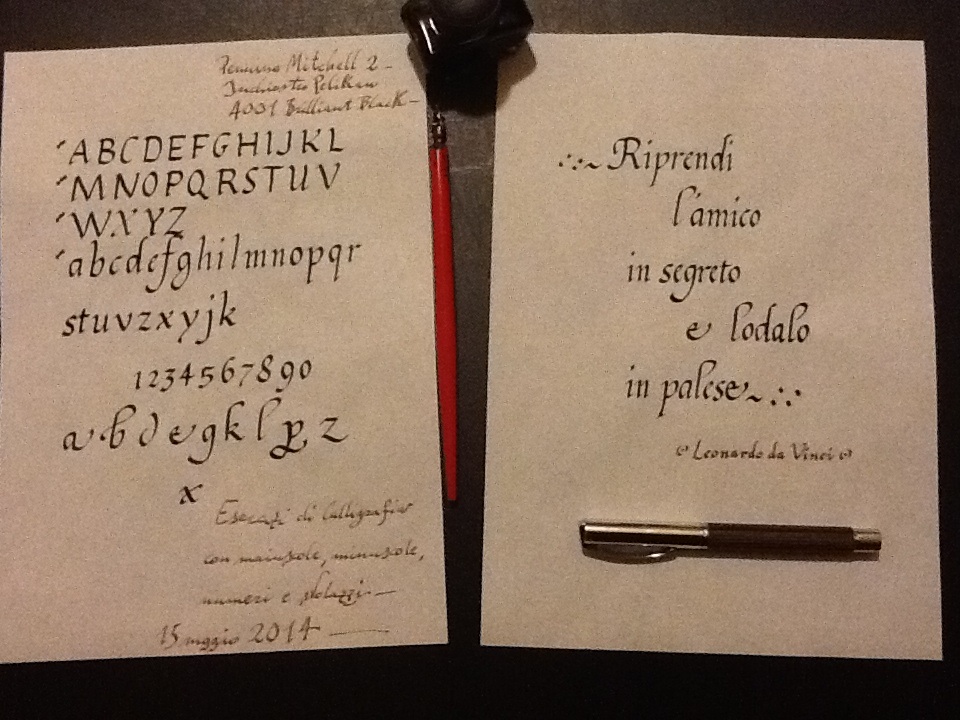 Pennino Mitchell 2 -
Inchiostro Pelikan
4001 Brilliant Black -
ABCDEFGHIJKL
MNOPQRSTUV
WXYZ
abcdefghilmnopqr
stuvzxyjk
1234567890
a b d e g k l p z
x
Esercizi di Calligrafia
con maiuscole, minuscole,
numeri e svolazzi —
15 maggio 2014 —
Riprendi
l'amico
in segreto
e lodalo
in palese
Leonardo da Vinci